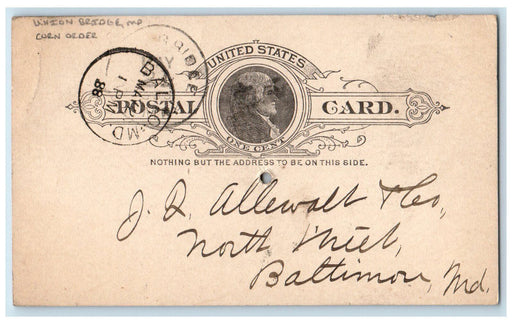 UNION BRIDGE, MD
CORN ORDER
BALTO. MD
MAR
1 PM
88
UNITED STATES
POSTAL CARD.
ONE CENT
NOTHING BUT THE ADDRESS TO BE ON THIS SIDE.
J. Q. Allewalt & Co,
North Street,
Baltimore, Md.